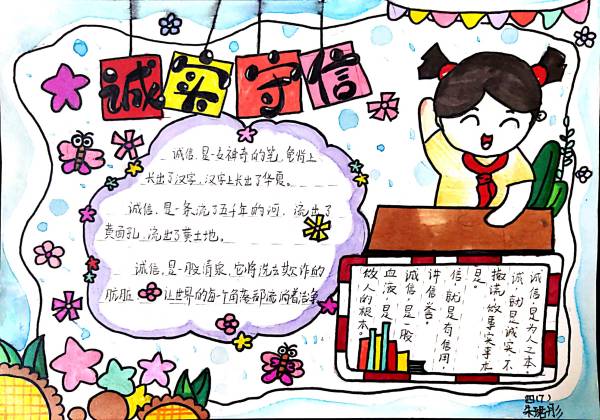 诚实守信
诚信,是一支神奇的笔,龟背上
长出了汉字,汉字上长出了华夏。
诚信,是一条流了五千年的河,流出了
黄面孔,流出了黄土地。
诚信,是一股清泉,它将洗去欺诈的
肮脏,让世界的每一个角落都流淌着洁净
诚信,是为人之本,
诚,就是诚实,不
撒谎,做事实事求
是。
信,就是有信用,
讲信誉。
诚信,是一股
血液,是
做人的根本。
四(7)